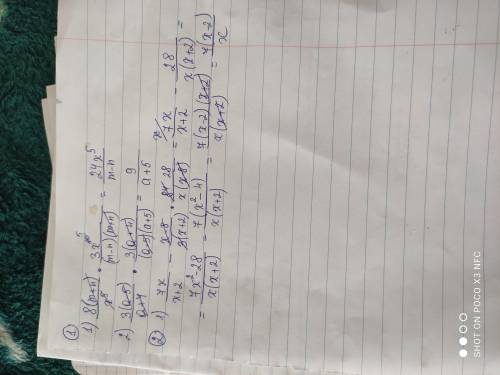 ①
1) 8(m+n)/x⁸ · 3x⁵/(m-n)(m+n) = 24x⁵/m-n
2) 3(a-5)/a+4 · 3(a+4)/(a-5)(a+5) = 9/a+5
②
1) 7x/x+2 - x-8/3(x+2) · 28/x(x-8) = 7x/x+2 - 28/x(x+2) =
= 7x²-28/x(x+2) = 7(x²-4)/x(x+2) = 7(x-2)(x+2)/x(x+2) = 7(x-2)/x
SHOT ON POCO X3 NFC